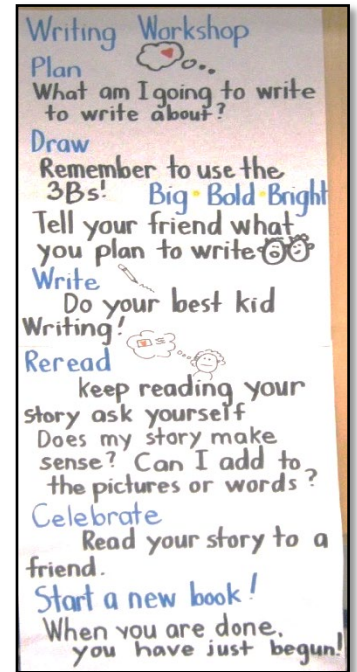 Writing Workshop
Plan
What am I going to write
to write about?
Draw
Remember to use the
3Bs! Big Bold Bright
Tell your friend what
you plan to write
Write
Do your best kid
Writing!
Reread
keep reading your
story ask yourself
Does my story make
sense? Can I add to
the pictures or words?
Celebrate
Read your story to a
friend.
Start a new book!
When you are done,
you have just begun!